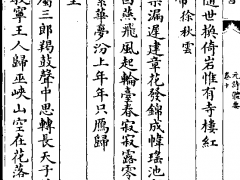 隨世換倚岩惟有寺樓紅
帝徐秋雲
漏遲建章花發錦成幃瑤池
燕飛風起輪臺春寂寂露零
繁華夢汾上年年只鴈歸
三郎羯鼓聲中思轉長天子
寧王人歸巫峽山空在花落
元詩體要
卷十